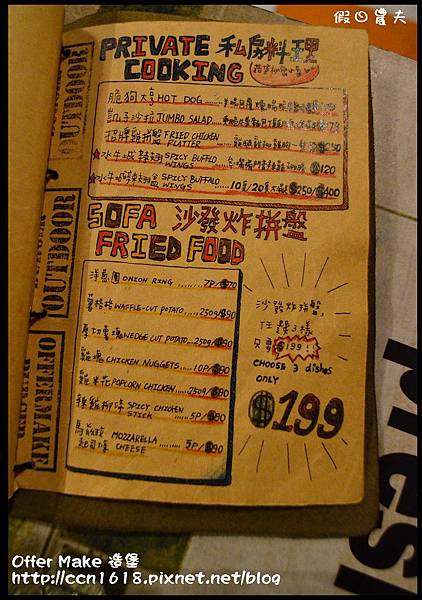 假日農夫
PRIVATE 私房料理
COOKING
脆狗大亨 HOT DOG
凱子沙拉 JUMBO SALAD
招牌雞拼盤 FRIED CHICKEN
PLATTER
水牛城辣翅 SPICY BUFFLO
WINGS $120
水牛城辣翅 SPICY BUFFALO
WINGS 10隻/20隻 $250/$400
SOFA 沙發炸拼盤
FRIED FOOD
洋蔥圈 ONION RING ........ 7P/$70
薯格格 WAFFLE-CUT POTATO ..... 250g/$90
厚切薯塊 WEDGE CUT POTATO ... 250g/$90
雞塊 CHICKEN NUGGETS ........ 10P/$90
雞米花 POPCORN CHICKEN ...... 250g/$90
辣雞柳條 SPICY CHICKEN
STICK ...... 5P/$90
馬茲瑞拉
起司條 MOZZARELLA
CHEESE ........ 5P/$90
沙發炸拼盤,
任選3樣
只要 $199!!
CHOOSE 3 dishes
ONLY
$199
OUTDOOR
OUTDOOR
OFFERMAKE
Offer Make 造堡
http://ccn1618.pixnet.net/blog